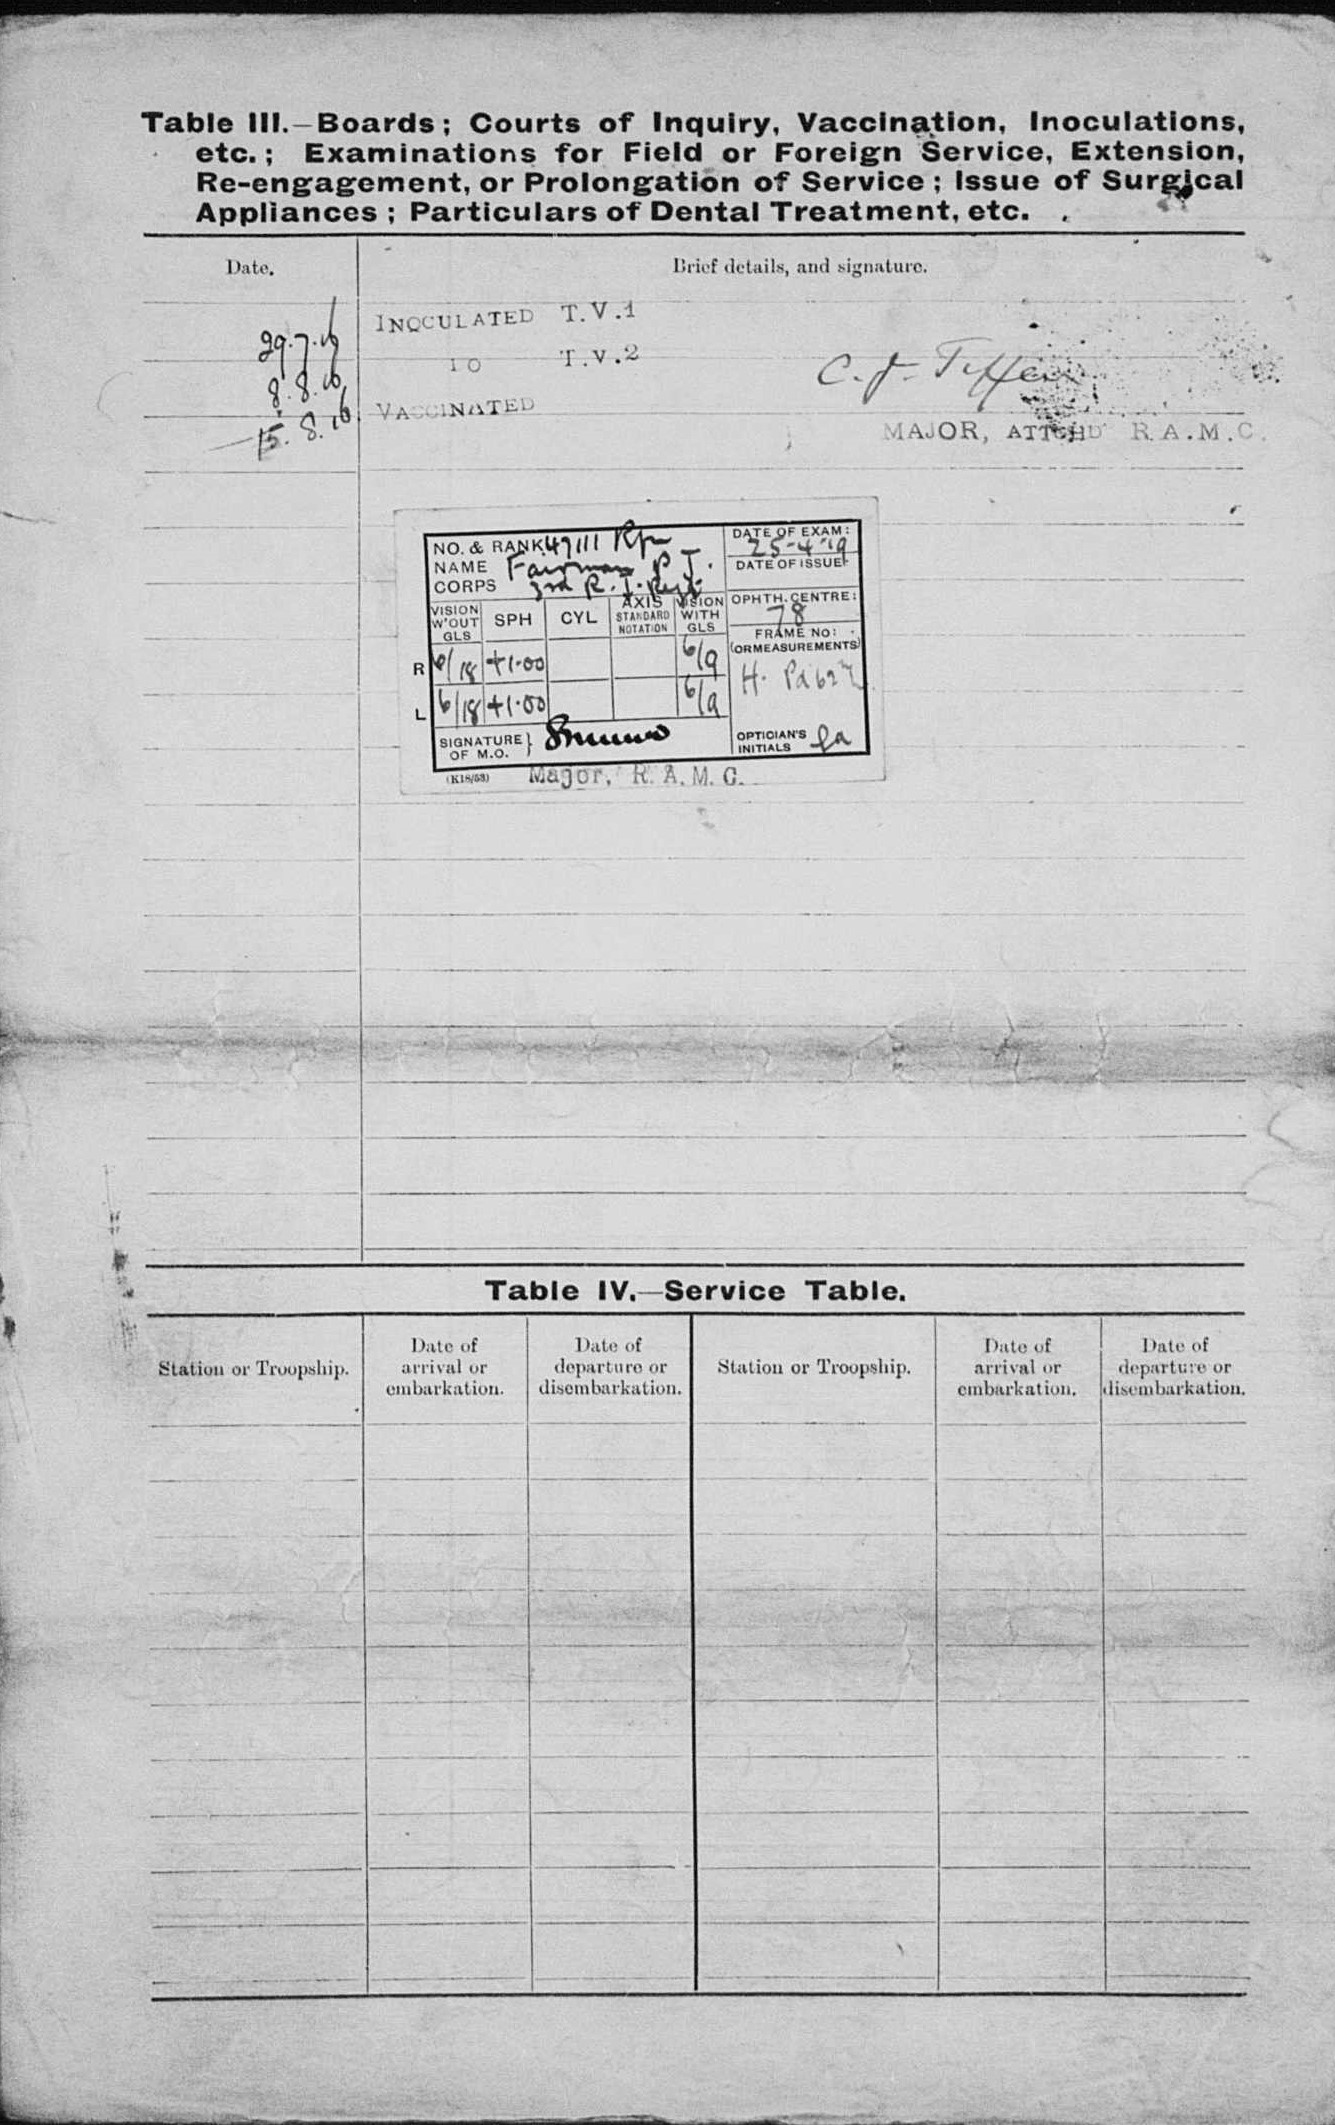 Table III.—Boards; Courts of Inquiry, Vaccination, Inoculations,
etc.; Examinations for Field or Foreign Service, Extension,
Re-engagement, or Prolongation of Service; Issue of Surgical
Appliances; Particulars of Dental Treatment, etc.
Date.
Brief details, and signature.
29.7.16 INOCULATED T.V.1
8.8.16 TO T.V.2
15.8.16 VACCINATED
C. J.
MAJOR, ATTCHD R.A.M.C.
NO. & RANK 47111 Rfn
NAME Fairman P J.
CORPS 3rd R. I. Regt
DATE OF EXAM:
25-4-19
DATE OF ISSUE:
VISION W'OUT GLS
SPH
CYL
AXIS STANDARD NOTATION
VISION WITH GLS
OPHTH. CENTRE:
78
FRAME NO:
(OR MEASUREMENTS)
H. Pd 62
R 6/18 +1.00 6/9
L 6/18 +1.00 6/9
SIGNATURE OF M.O. }
OPTICIAN'S INITIALS
(K18/53)
Major, R.A.M.C.
Table IV.—Service Table.
Station or Troopship.
Date of arrival or embarkation.
Date of departure or disembarkation.
Station or Troopship.
Date of arrival or embarkation.
Date of departure or disembarkation.